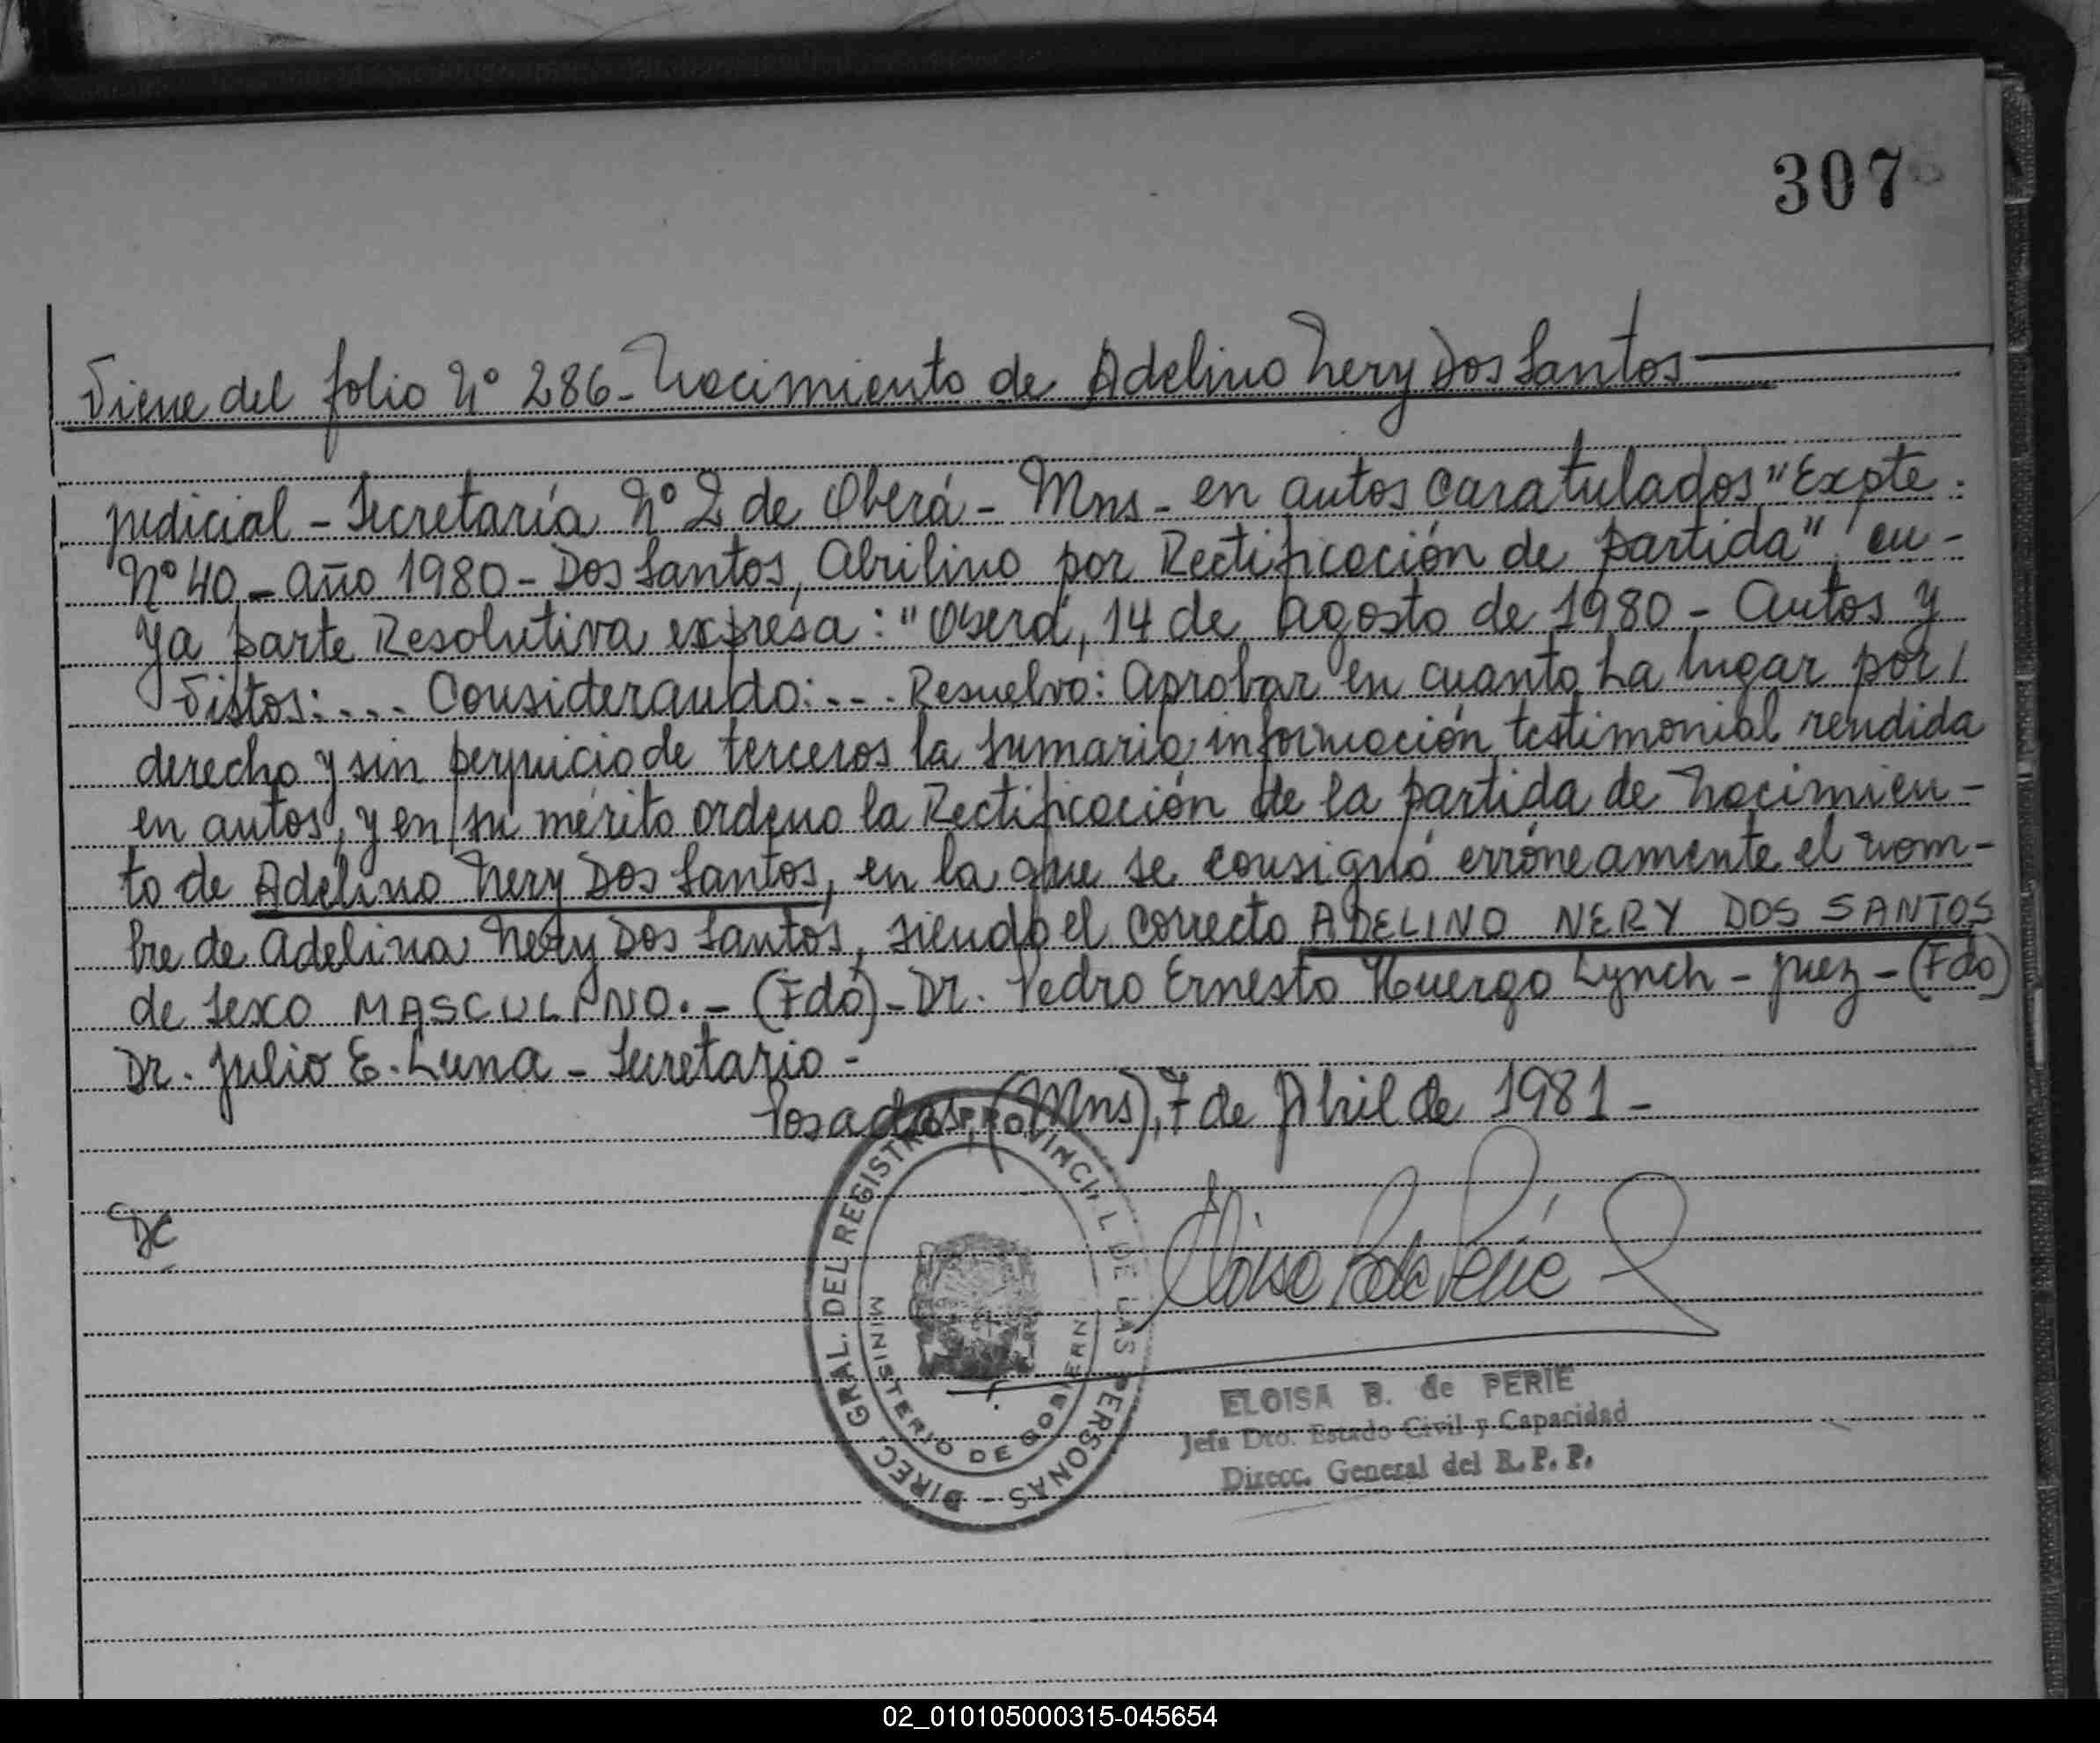 307
Viene del folio Nº 286 - Nacimiento de Adelino Nery Dos Santos
judicial - Secretaría Nº 2 de Oberá - Mns - en autos caratulados "Expte.
Nº 40 - año 1980 - Dos Santos, Abrilino por Rectificación de partida", cu-
ya parte Resolutiva expresa: "Oberá, 14 de agosto de 1980 - Autos y
Vistos: ... Considerando: ... Resuelvo: Aprobar en cuanto ha lugar por/
derecho y sin perjuicio de terceros la sumaria información testimonial rendida
en autos, y en su mérito ordeno la Rectificación de la partida de nacimien-
to de Adelino Nery Dos Santos, en la que se consignó erróneamente el nom-
bre de Adelina Nery Dos Santos, siendo el correcto ADELINO NERY DOS SANTOS
de sexo MASCULINO. - (Fdo) - Dr. Pedro Ernesto Huergo Lynch - juez - (Fdo)
Dr. Julio E. Luna - Secretario -
Posadas, (Mns), 7 de Abril de 1981 -
DIREC. GRAL. DEL REGISTRO PROVINCIAL DE LAS PERSONAS -
MINISTERIO DE GOBIERNO
ELOISA B. de PERIE
Jefa Dto. Estado Civil y Capacidad
Direcc. General del R. P. P.
02_010105000315-045654